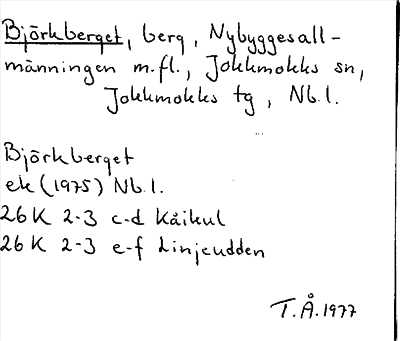 Björkberget, berg, Nybyggesall-
männingen m.fl., Jokkmokks sn,
Jokkmokks tg, Nb.l.
Björkberget
ek (1975) Nb.l.
26K 2-3 c-d Kåikul
26K 2-3 e-f Linjeudden
T.Å.1977